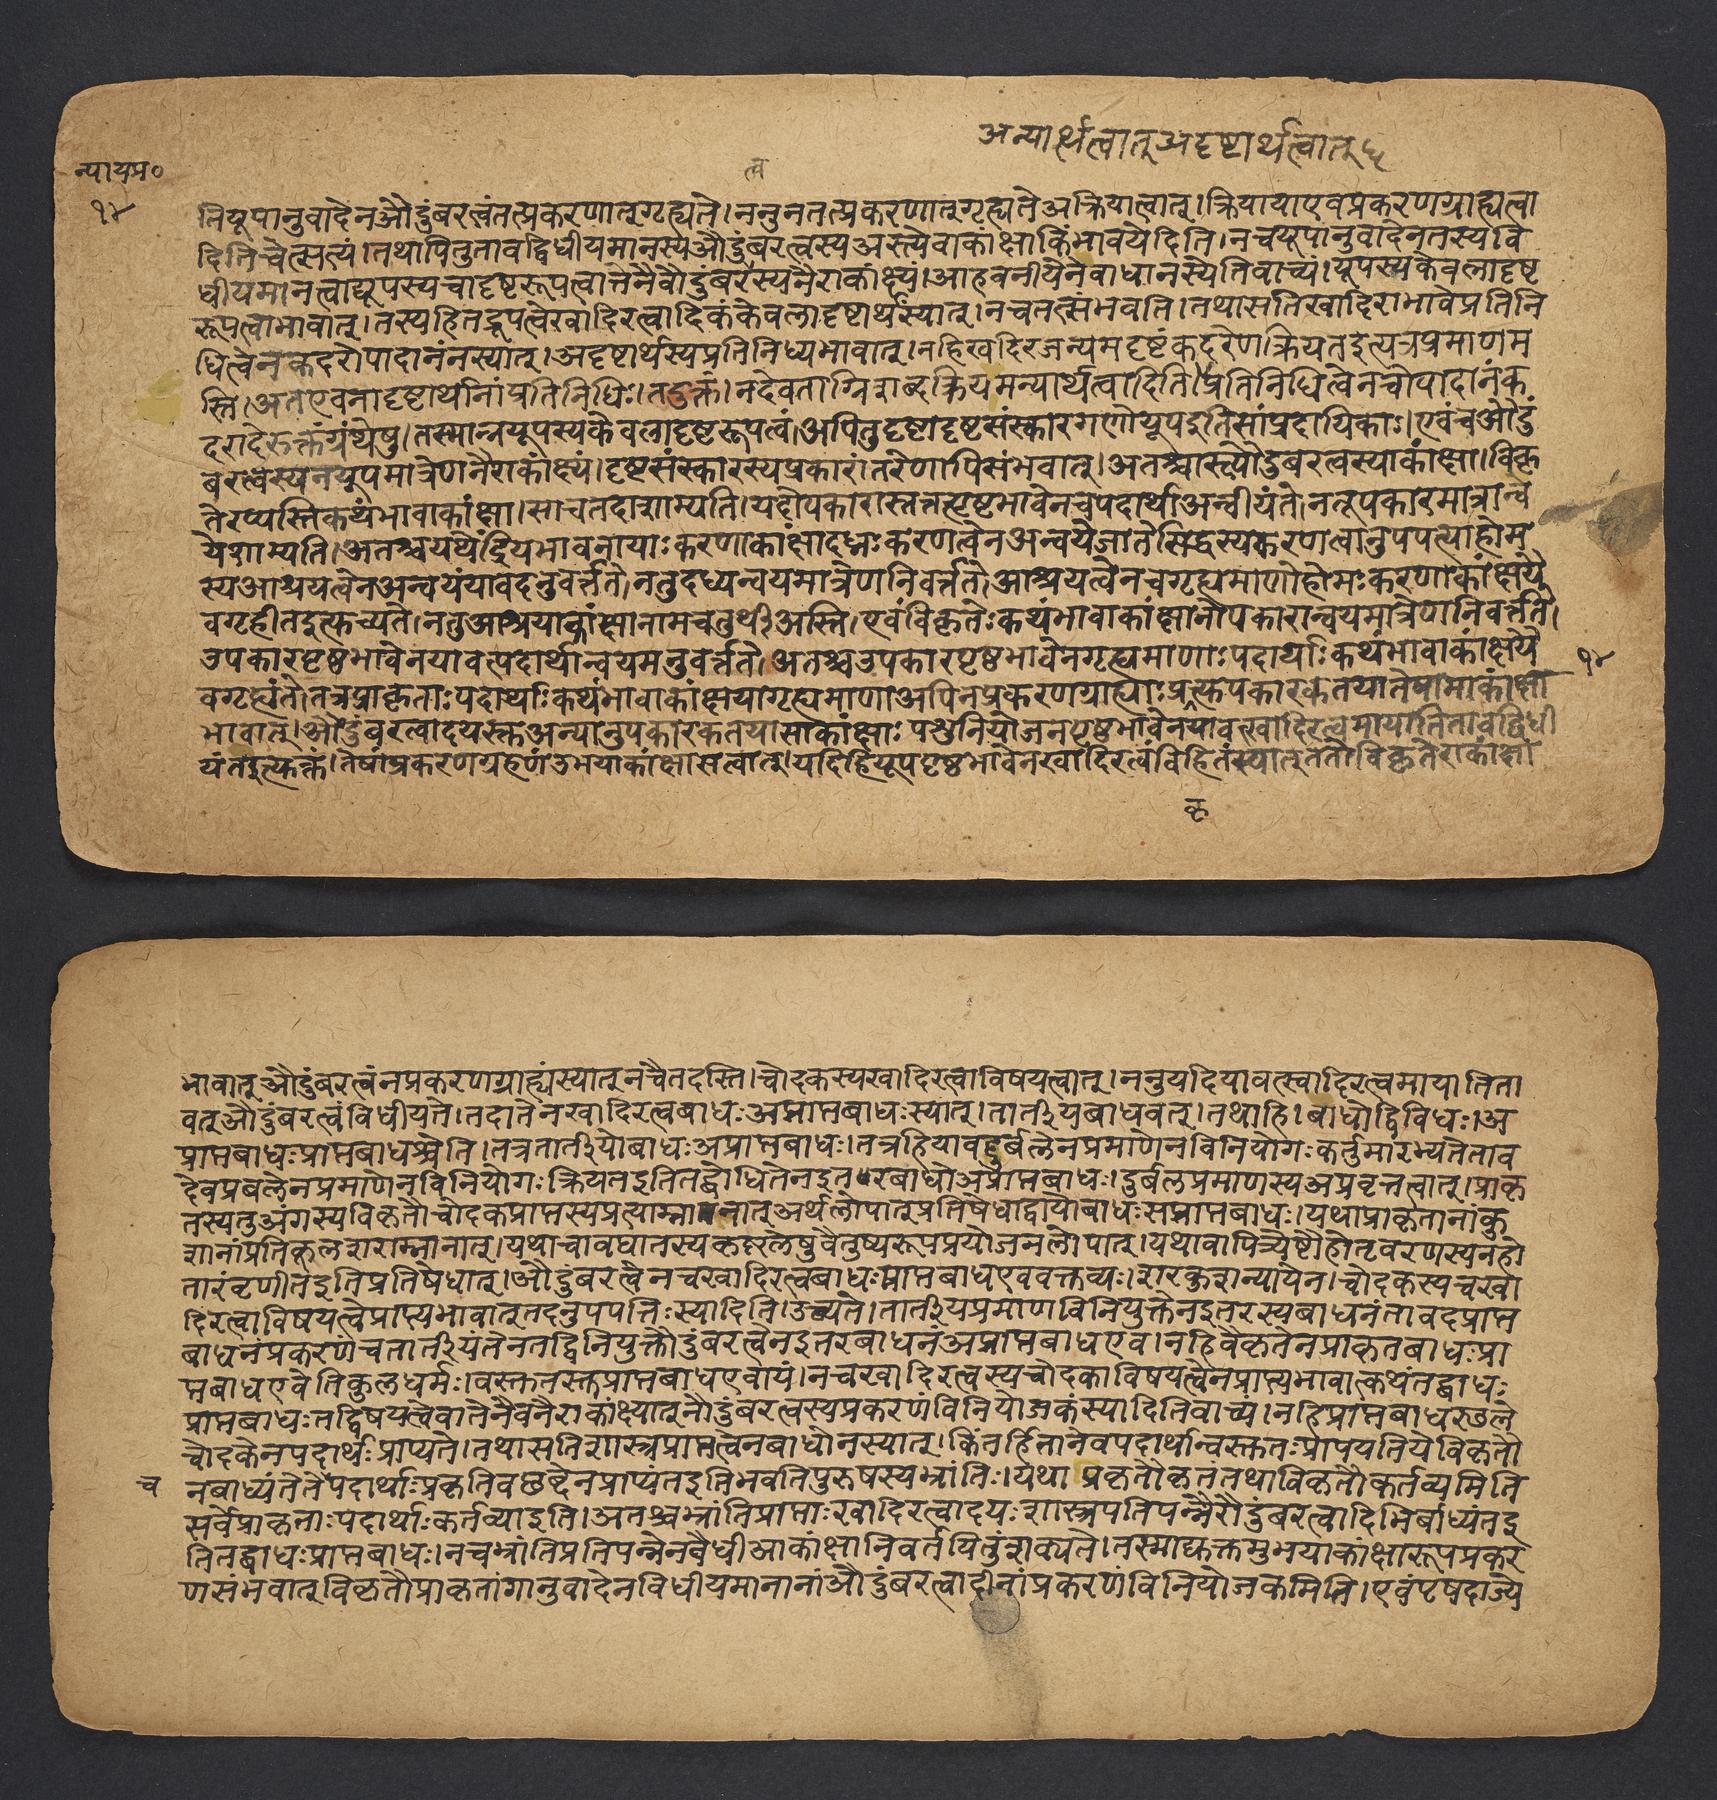 अन्यार्थत्वात् अदृष्टार्थत्वात् ६
न्यायप्र०
त्व
१४
तियूपानुवादेनऔदुंबरत्वंतत्प्रकरणात्गृह्यते।ननुनतत्प्रकरणात्गृह्यतेअक्रियात्वात्।क्रियायाएवप्रकरणग्राह्यत्वा
दितिचेत्सत्यं।तथापितुतावद्विधीयमानस्यऔदुंबरत्वस्यअस्त्येवाकांक्षाकिंभावयेदिति।नचयूपानुवादेनतस्यवि
धीयमानत्वाद्यूपस्यचादृष्टरूपत्वात्तेनैवौदुंबरस्यनैराकांक्ष्यं।आहवनीयेनेवाधानस्येतिवाच्यं।यूपस्यकेवलादृष्ट
रूपत्वाभावात्।तस्यहितद्रूपत्वेखादिरत्वादिकंकेवलादृष्टार्थंस्यात्।नचतत्संभवति।तथासतिखादिराभावेप्रतिनि
धित्वेनकदरोपादानंनस्यात्।अदृष्टार्थस्यप्रतिनिध्यभावात्।नहिखदिरजन्यमदृष्टंकदरेणक्रियतइत्यत्रप्रमाणम
स्ति।अतएवनादृष्टार्थानांप्रतिनिधिः।तदुक्तं।नदेवताग्निशब्दक्रियमन्यार्थत्वादिति।प्रतिनिधित्वेनचोपादानंक
दरादेरुक्तंग्रंथेषु।तस्मान्नयूपस्यकेवलादृष्टरूपत्वं।अपितुदृष्टादृष्टसंस्कारगणोयूपइतिसांप्रदायिकाः।एवंचऔदुं
बरत्वस्यनयूपमात्रेणनैराकांक्ष्यं।दृष्टसंस्कारस्यप्रकारांतरेणापिसंभवात्।अतश्चास्त्यौदुंबरत्वस्याकांक्षा।विकृ
तेरप्यस्तिकथंभावाकांक्षा।साचतदाशाम्यति।यदोपकारास्तत्तत्पृष्टभावेनचपदार्थाअन्वीयंते।नतूपकारमात्रान्व
येशाम्यति।अतश्चयथेंद्रियभावनायाःकरणाकांक्षादध्नःकरणत्वेनअन्वयेजातेसिद्धस्यकरणत्वानुपपत्याहोम
स्यआश्रयत्वेनअन्वयंयावदनुवर्त्तते।नतुदध्यन्वयमात्रेणनिवर्त्तते।आश्रयत्वेनचगृह्यमाणोहोमःकरणाकांक्षयै
वगृहीतइत्क्तच्यते।नतुआश्रयाकांक्षानामचतुर्थीअस्ति।एवंविकृतेःकथंभावाकांक्षानोपकारान्वयमात्रेणनिवर्त्तते।
उपकारपृष्ठभावेनयावत्पदार्थान्वयमनुवर्त्तते।अतश्चउपकारपृष्ठभावेनगृह्यमाणाःपदार्थाःकथंभावाकांक्षयै
१४
वगृह्यंते।तत्रप्राकृताःपदार्थाःकथंभावाकांक्षयागृह्यमाणाअपिनप्रकरणग्राह्याःप्रत्क्तपकारकतयातेषामाकांक्षा
भावात्।औदुंबरत्वादयस्त्कअन्यानुपकारकतयासाकांक्षाःपशुनियोजनपृष्ठभावेनयावत्खादिरत्वमायातितावद्विधी
यंतइत्क्तक्तं।तेषांप्रकरणग्रहणंउभयाकांक्षासत्वात्।यदिहियूपपृष्ठभावेनखादिरत्वंविहितंस्यात्ततोविकृतेराकांक्षा
कृ
भावात्औदुंबरत्वंनप्रकरणग्राह्यंस्यात्नचैतदस्ति।चोदकस्यखादिरत्वाविषयत्वात्।ननुयदियावत्खादिरत्वमायातिता
वत्औदुंबरत्वंविधीयते।तदातेनखादिरत्वबाधःअप्राप्तबाधःस्यात्।तार्तीयबाधवत्।तथाहि।बाधोद्विविधः।अ
प्राप्तबाधःप्राप्तबाधश्चेति।तत्रतार्तीयोबाधःअप्राप्तबाधः।तत्रहियावद्दुर्बलेनप्रमाणेनविनियोगःकर्तुमारभ्यतेताव
देवप्रबलेनप्रमाणेनविनियोगःक्रियतइतितद्बोधितेनइतरबाधोअप्राप्तबाधः।दुर्बलप्रमाणस्यअप्रवृत्तत्वात्।प्राकृ
तस्यतुअंगस्यविकृतौचोदकप्राप्तस्यप्रत्याम्नानात्अर्थलोपात्प्रतिषेधाद्वायोबाधःसप्राप्तबाधः।यथाप्राकृतानांकु
शानांप्रतिकूलशराम्नानात्।यथाचावघातस्यकृष्णलेषुवैतुष्यरूपप्रयोजनलोपात्।यथावापित्र्येष्टौहोतृवरणस्यनहो
तारंवृणीतेइतिप्रतिषेधात्।औदुंबरत्वेनचखादिरत्वबाधःप्राप्तबाधएववक्तव्यः।शरकुशन्यायेन।चोदकस्यचखा
दिरत्वाविषयत्वेप्राप्त्यभावात्तदनुपपत्तिःस्यादिति।उच्यते।तार्तीयप्रमाणविनियुक्तेनइतरस्यबाधनंतावदप्राप्त
बाधनंप्रकरणंचतार्तीयंतेनतद्विनियुक्तौदुंबरत्वेनइतरबाधनंअप्राप्तबाधएव।नहिवैकृतेनप्राकृतबाधःप्रा
प्तबाधएवेतिकुलधर्मः।वस्त्कतस्त्कप्राप्तबाधएवायं।नचखादिरत्वस्यचोदकाविषयत्वेनप्राप्त्यभावात्कथंतद्बाधः
प्राप्तबाधःतद्विषयत्वेवातेनैवनैराकांक्ष्यात्नौदुंबरत्वस्यप्रकरणंविनियोजकंस्यादितिवाच्यं।नहिप्राप्तबाधस्छले
चोदकेनपदार्थाःप्राप्यंते।तथासतिशास्त्रप्राप्तत्वेनबाधोनस्यात्।किंतर्हितानेवपदार्थान्वस्त्कतःप्रापयतियेविकृतौ
च
नबाध्यंतेतेपदार्थाःप्रकृतिवच्छब्देनप्राप्यंतइतिभवतिपुरुषस्यभ्रांतिः।यथाप्रकृतौकृतंतथाविकृतौकर्तव्यमिति
सर्वेप्राकृताःपदार्थाःकर्तव्याइति।अतश्चभ्रांतिप्राप्ताःखादिरत्वादयःशास्त्रप्रतिपन्नैरौदुंबरत्वादिभिर्बाध्यंतइ
तितद्बाधःप्राप्तबाधः।नचभ्रांतिप्रतिपन्नेनवैधीआकांक्षानिवर्तयितुंशक्यते।तस्माद्युक्तमुभयाकांक्षारूपप्रकर
णसंभवात्विकृतौप्राकृतांगानुवादेनविधीयमानानांऔदुंबरत्वादीनांप्रकरणंविनियोजकमिति।एवंपृषदाज्ये